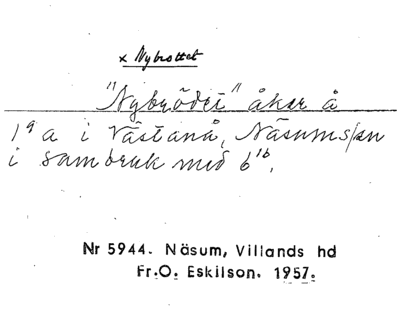 × Nybrottet
"Nybrödet" åker å
1ª a i Västanå, Näsums sn
i sambruk med 6¹ᵇ.
Nr 5944. Näsum, Villands hd
Fr.O. Eskilson. 1957.